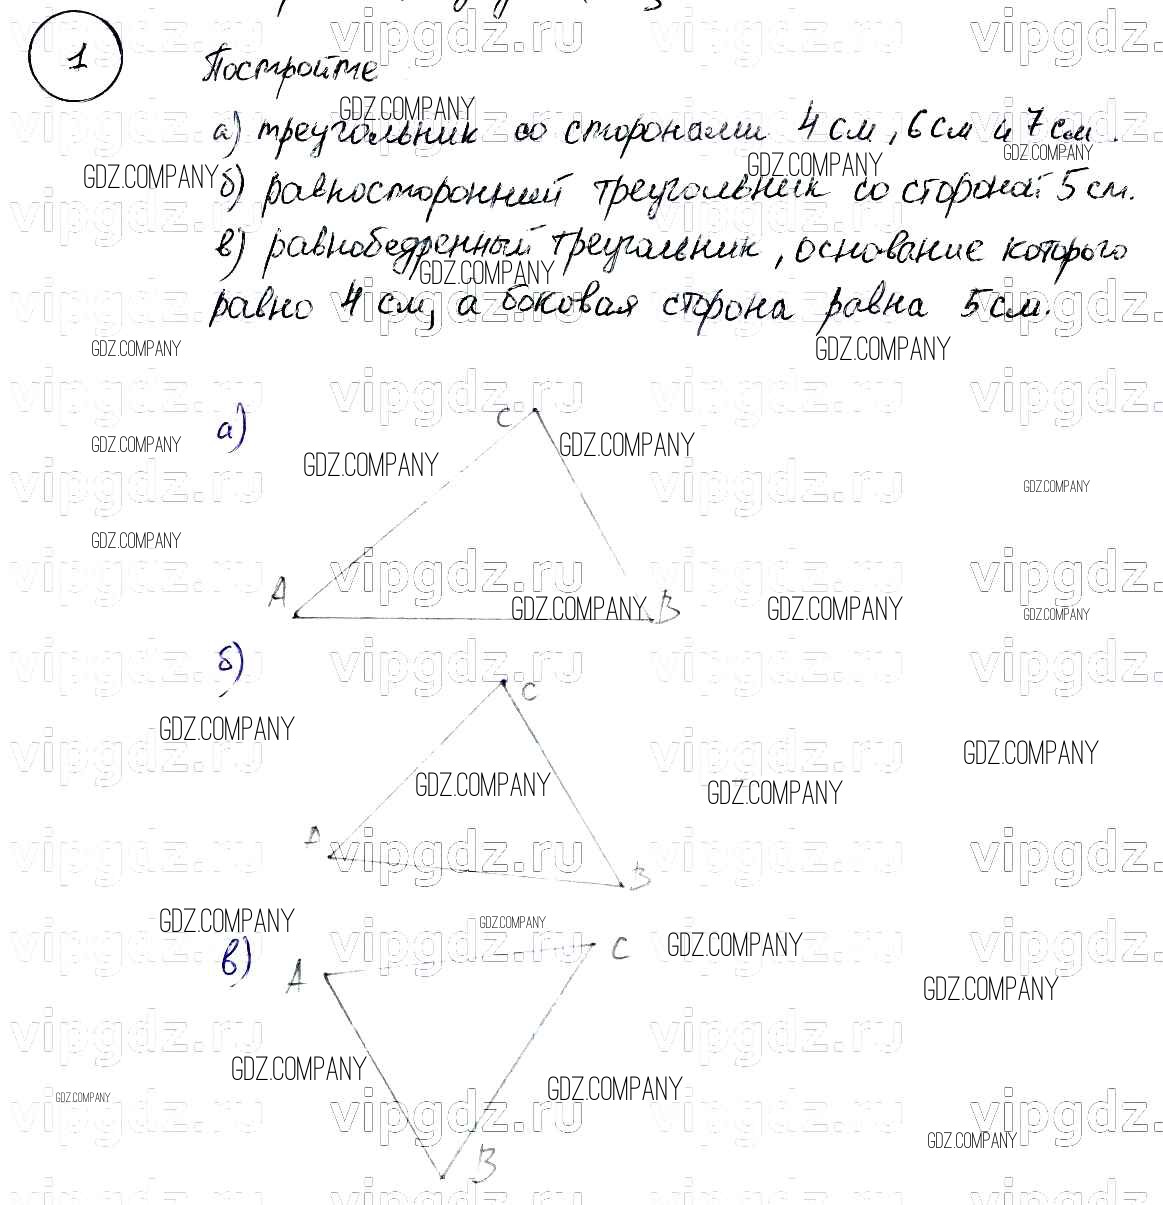 1
Постройте
а) треугольник со сторонами 4 см, 6 см и 7 см.
б) равносторонний треугольник со стороной 5 см.
в) равнобедренный треугольник, основание которого
равно 4 см, а боковая сторона равна 5 см.
а)
C
A
B
б)
C
A
B
в)
A
C
B
vipgdz.ru
GDZ.COMPANY